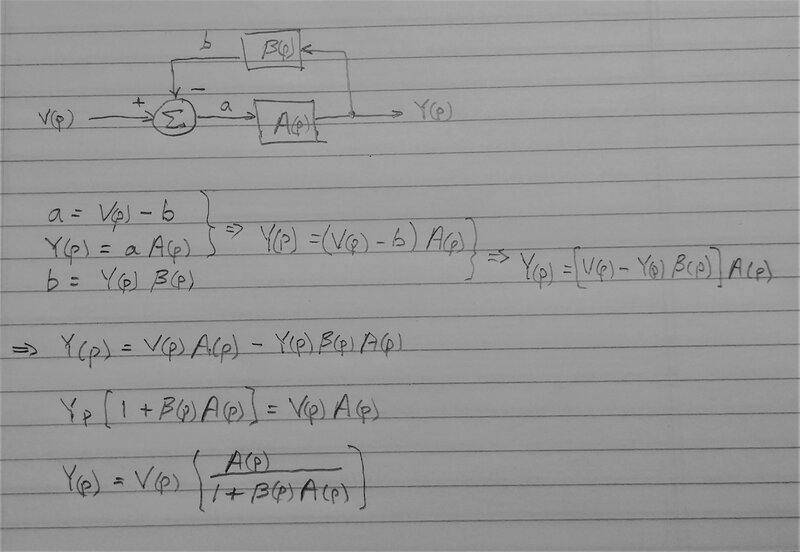 b β(p)
V(p) + Σ − a A(p) Y(p)
a = V(p) − b
Y(p) = a A(p) } ⇒ Y(p) = (V(p) − b) A(p) } ⇒ Y(p) = [V(p) − Y(p) β(p)] A(p)
b = Y(p) β(p)
⇒ Y(p) = V(p) A(p) − Y(p) β(p) A(p)
Yp [1 + β(p) A(p)] = V(p) A(p)
Y(p) = V(p) [A(p) / 1 + β(p) A(p)]